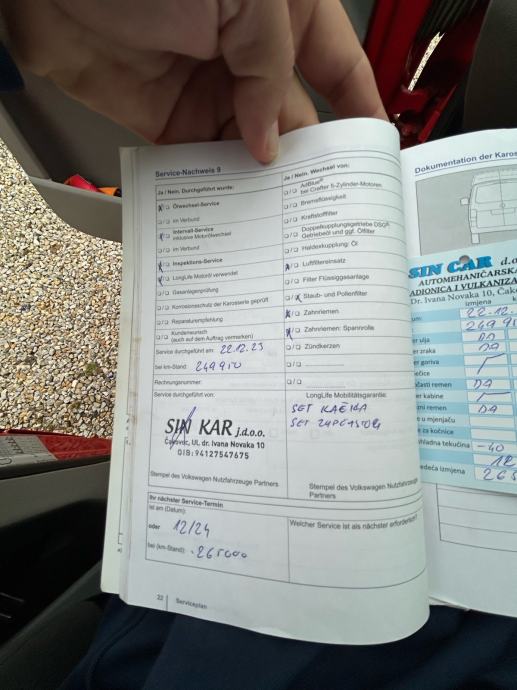 Service-Nachweis 9
Ja / Nein, Durchgeführt wurde:
Ölwechsel-Service
im Verbund
Intervall-Service
inklusive Motorölwechsel
im Verbund
Inspektions-Service
LongLife Motoröl verwendet
Gasanlagenprüfung
Korrosionsschutz der Karosserie geprüft
Reparaturempfehlung
Kundenwunsch
(auch auf dem Auftrag vermerken)
Service durchgeführt am: 22.12.23
bei km-Stand: 249910
Rechnungsnummer:
Service durchgeführt von:
SIN KAR j.d.o.o.
Čakovec, Ul. dr. Ivana Novaka 10
OIB: 94127547675
Stempel des Volkswagen Nutzfahrzeuge Partners
Ja / Nein, Wechsel von:
AdBlue®
bei Crafter 5-Zylinder-Motoren
Bremsflüssigkeit
Kraftstofffilter
Doppelkupplungsgetriebe DSG®
Getriebeöl und ggf. Ölfilter
Haldexkupplung: Öl
Luftfiltereinsatz
Filter Flüssiggasanlage
Staub- und Pollenfilter
Zahnriemen
Zahnriemen: Spannrolle
Zündkerzen
LongLife Mobilitätsgarantie:
SET
SET
Stempel des Volkswagen Nutzfahrzeuge
Partners
Ihr nächster Service-Termin
ist am (Datum):
oder 12/24
bei (km-Stand): 265000
Welcher Service ist als nächster erforderlich?
22 Serviceplan
Dokumentation der Karos
SIN CAR d.o
AUTOMEHANIČARSKA
ADIONICA I VULKANIZA
Dr. Ivana Novaka 10, Čako
izmjena
um: 22.12.
249 9
r ulja DA
r zraka DA
r goriva
ečice
časti remen DA
r kabine
ni remen DA
u mjenjaču
za kočnice
hladna tekućina -40
12
edeća izmjena 265